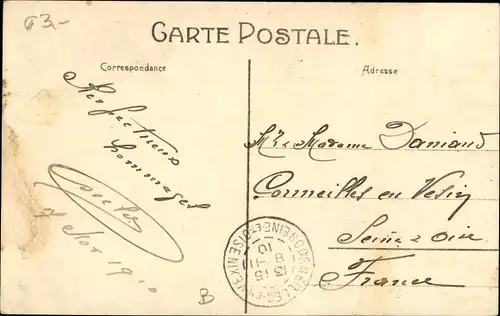 63.-
CARTE POSTALE.
Correspondance
Adresse
Respectueux
hommages
1910
Mr & Madame Damiand
Cormeilles en Vexin
Seine & Oise
France
CORMEILLES-EN-VEXIN SEINE-ET-OISE
13 15
8 -11
10
B